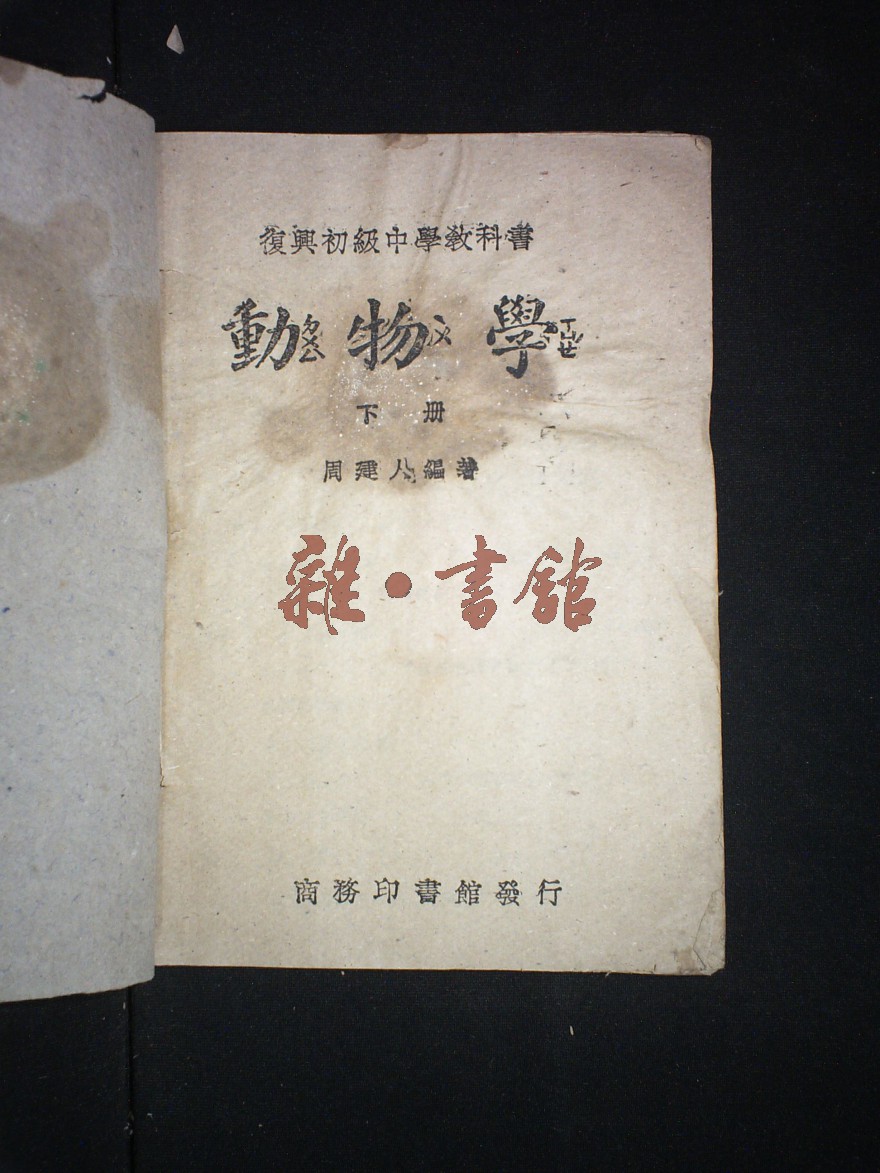 復興初級中學教科書
動ㄉㄨㄥ物ㄨ學ㄒㄩㄝ
下册
周建人編著
雜·書館
商務印書館發行